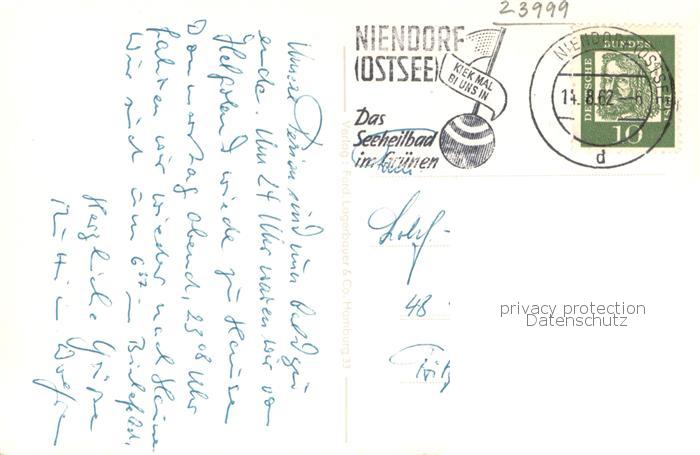 23999
NIENDORF
(OSTSEE)
KIEK MAL
BI UNS IN
Das
Seeheilbad
im Grünen
NIENDORF (OSTSEE)
14.8.62
d
DEUTSCHE BUNDESPOST
10
Unsere Ferien sind nun bald zu
ende. Um 24 Uhr waren wir von
Helgoland wieder zu Hause
Donnerstag abend, 23 08 Uhr
fahren wir wieder nach Hause
Wir sind um 6 37 in Bielefeld.
Herzliche Grüße
Verlag: Ferd. Lagerbauer & Co. Hamburg 33
48
privacy protection
Datenschutz